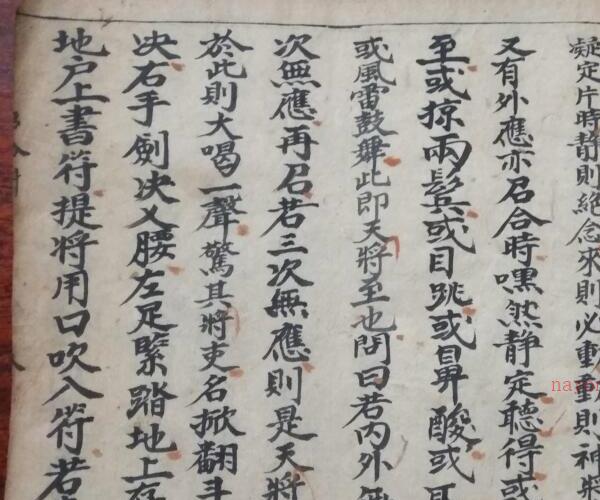 凝定片時靜則絕念來則必動動則神將
又有外應亦召合時嘿然靜定聽得或
至或掠兩鬂或目跳或鼻酸或耳
或風雷鼓舞此即天將至也問曰若内外無
次無應再召若三次無應則是天將
於此則大喝一聲驚其將吏名掀翻斗
决右手劍决乂腰左足緊踏地上存
地户上書符提將用口吹入符若